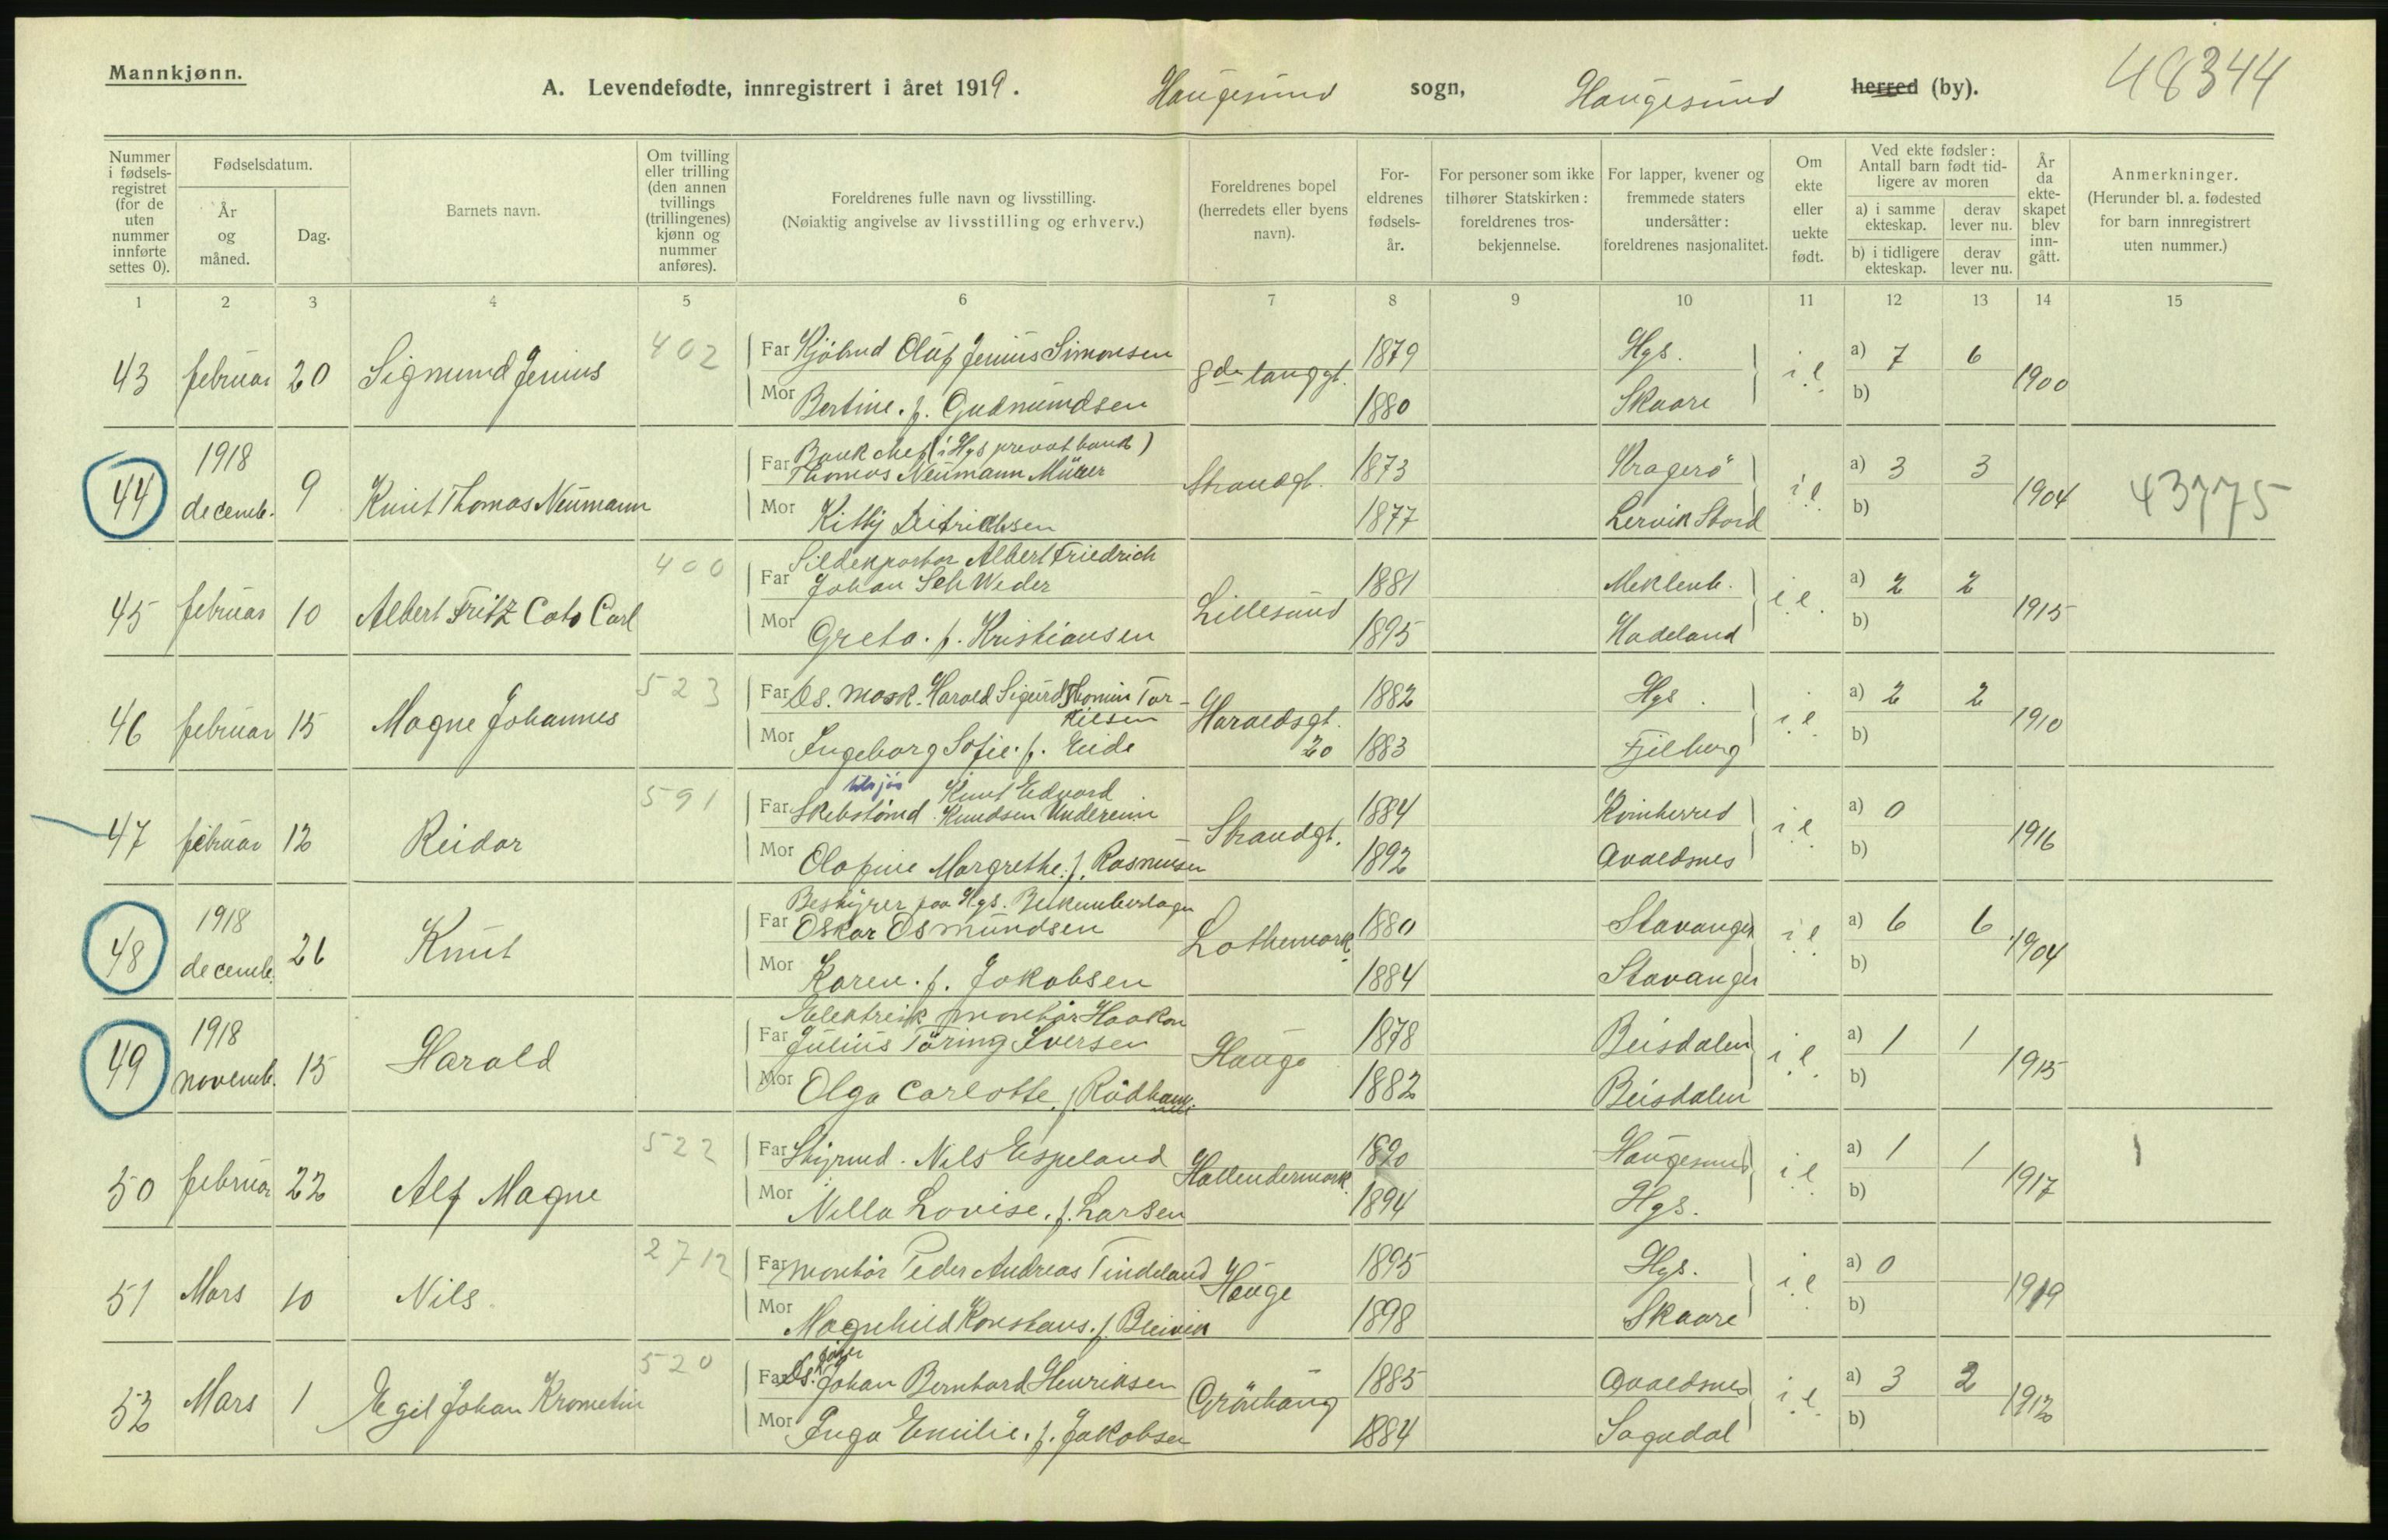 Mannkjønn.
A. Levendefødte, innregistrert i året 1919. Haugesund sogn, Haugesund herred (by).
48344
Nummer i fødsels-registret (for de uten nummer innførte settes 0).
Fødselsdatum.
År og måned.
Dag.
Barnets navn.
Om tvilling eller trilling (den annen tvillings (trillingenes) kjønn og nummer anføres).
Foreldrenes fulle navn og livsstilling.
(Nøiaktig angivelse av livsstilling og erhverv.)
Foreldrenes bopel (herredets eller byens navn).
For-eldrenes fødsels-år.
For personer som ikke tilhører Statskirken: foreldrenes tros-bekjennelse.
For lapper, kvener og fremmede staters undersåtter: foreldrenes nasjonalitet.
Om ekte eller uekte født.
Ved ekte fødsler: Antall barn født tid-ligere av moren
a) i samme ekteskap.
derav lever nu.
b) i tidligere ekteskap.
derav lever nu.
År da ekte-skapet blev inn-gått.
Anmerkninger.
(Herunder bl. a. fødested for barn innregistrert uten nummer.)
1 2 3 4 5 6 7 8 9 10 11 12 13 14 15
43 februar 20 Sigmund Jenius 402 Far Kjöbmd Oluf Jenius Simonsen 8de langgt. 1879 Hgs. i.e. a) 7 6 1900
Mor Bertine. f. Gudmundsen 1880 Skaare b)
44 1918 decemb. 9 Knut Thomas Neumann Far Bankchef (i Hgs privatbank)
Thomas Neumann Mürer Strandgt. 1873 Kragerö i.e. a) 3 3 1904 43775
Mor Kitty Ditrichsen 1877 Lervik Stord b)
45 februar 10 Albert Fritz Cato Carl 400 Far Sildexportør Albert Friedrich
Johan Sch Weder Lillesund 1881 Meklenb. i.e. a) 2 2 1915
Mor Greta. f. Kristiansen 1895 Hadeland b)
46 februar 15 Magne Johannes 523 Far Ds. mask. Harald Sigurd Thomin Tor-
kilsen Haraldsgt. 20 1882 Hgs. i.e. a) 2 2 1910
Mor Ingeborg Sofie. f. Eide 1883 Fjelberg b)
47 februar 12 Reidar 591 Far Skibstømd. Knut Edvard
Knudsen Undereim Strandgt. 1884 Kvinherred i.e a) 0 1916
Mor Olafine Margrethe. f. Rasmussen 1892 Avaldsnes b)
48 1918 decemb. 26 Knut Far Bestyrer paa Hgs.
Oskar Osmundsen Lothemark. 1880 Stavanger i.e a) 6 6 1904
Mor Karen. f. Jakobsen 1884 Stavanger b)
49 1918 novemb. 15 Harald Far Elektrisk montör Haakon
Julius Töring Iversen Hauge 1878 Beisdalen i.e. a) 1 1 1915
Mor Olga Carlotte. f. 1882 Beisdalen b)
50 februar 22 Alf Magne 522 Far Styrmd. Nils Espeland Hallendermark. 1890 Haugesund i.e. a) 1 1 1917 1
Mor Nilla Lovise. f. Larsen 1894 Hgs. b)
51 Mars 10 Nils 2712 Far montör Peder Andreas Tindeland Hauge 1895 Hgs. i.e. a) 0 1919
Mor Magnhild Konstans. f. Bleivik 1898 Skaare b)
52 Mars 1 Egil Johan Krometin 520 Far Ds. Johan Bernhard Henriksen Grönhaug 1885 Avaldsnes i.e. a) 3 2 1912
Mor Inga Emilie. f. Jakobsen 1884 Sogndal b)